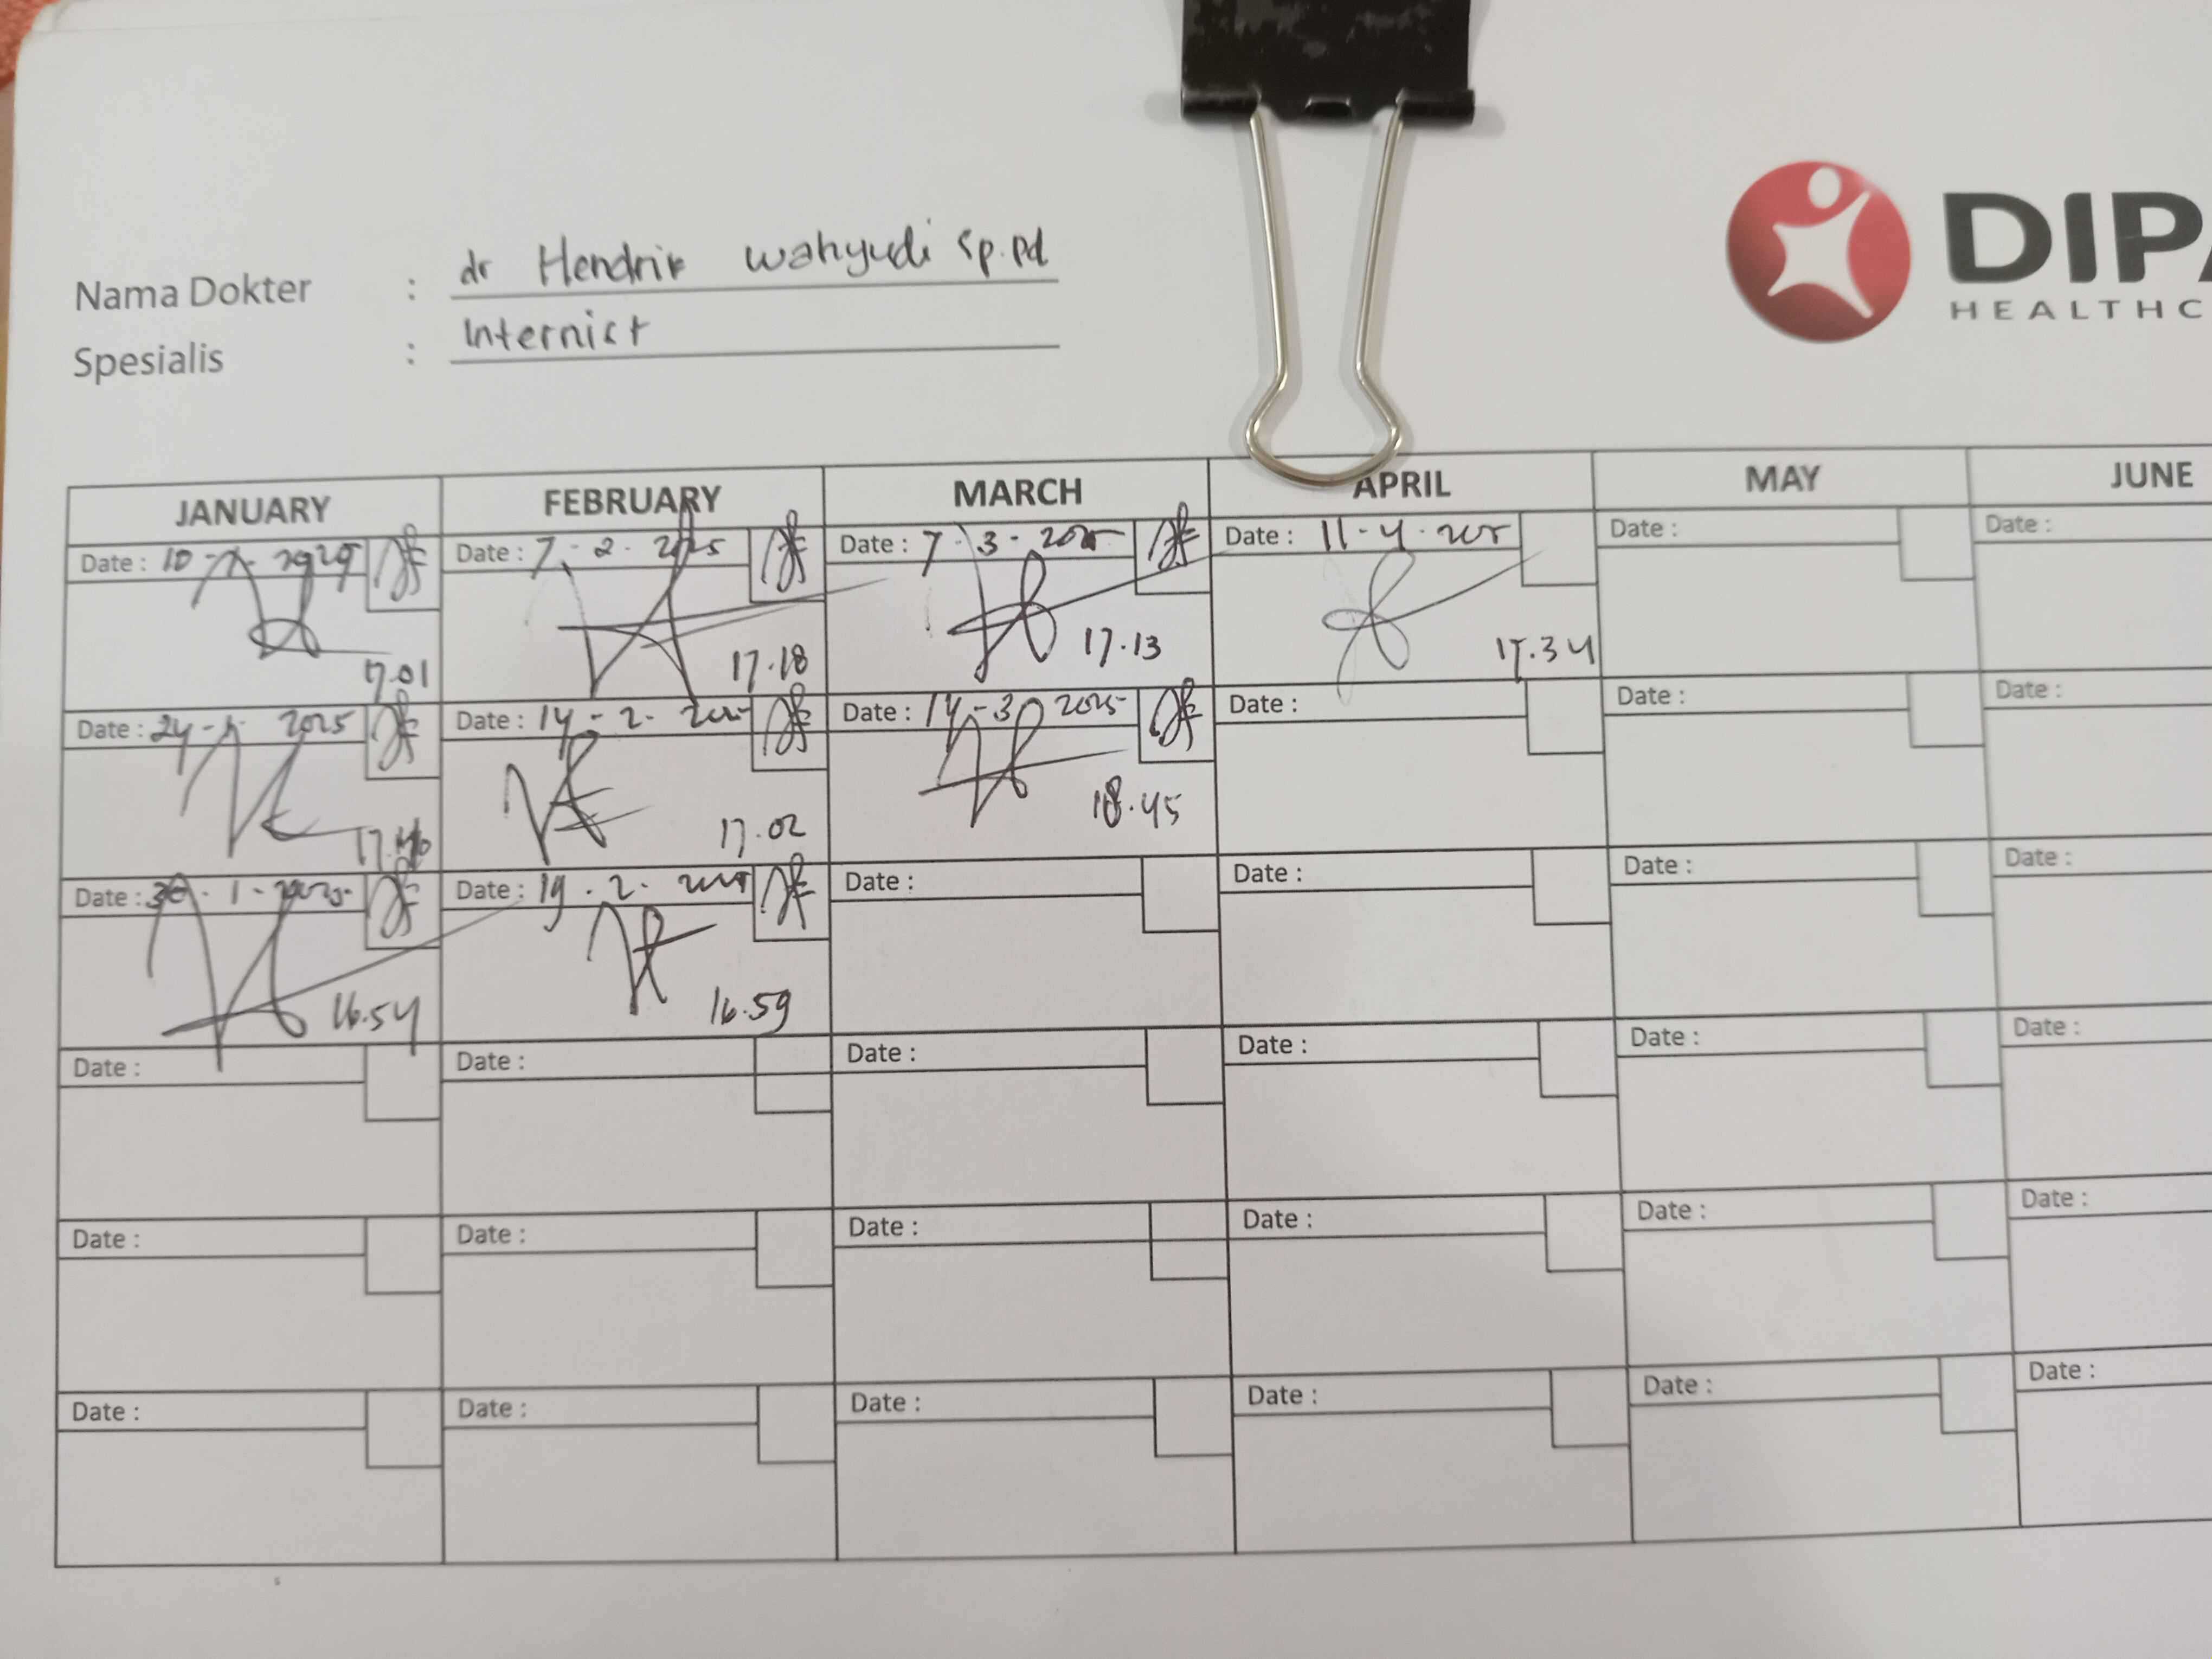 Nama Dokter : dr Hendrik Wahyudi Sp.Pd
Spesialis : Internist
DIPA
HEALTHC
JANUARY FEBRUARY MARCH APRIL MAY JUNE
Date : 10 - 1 - 2025 Date : 7 - 2 - 2025 Date : 7 - 3 - 2025 Date : 11 - 4 - 2025 Date : Date :
17.01 17.18 17.13 17.34
Date : 24 - 1 - 2025 Date : 14 - 2 - 2025 Date : 14 - 3 - 2025 Date : Date : Date :
17.02 18.45
Date : 30 - 1 - 2025 Date : 19 - 2 - 2025 Date : Date : Date : Date :
16.54 16.59
Date : Date : Date : Date : Date : Date :
Date : Date : Date : Date : Date : Date :
Date : Date : Date : Date : Date : Date :